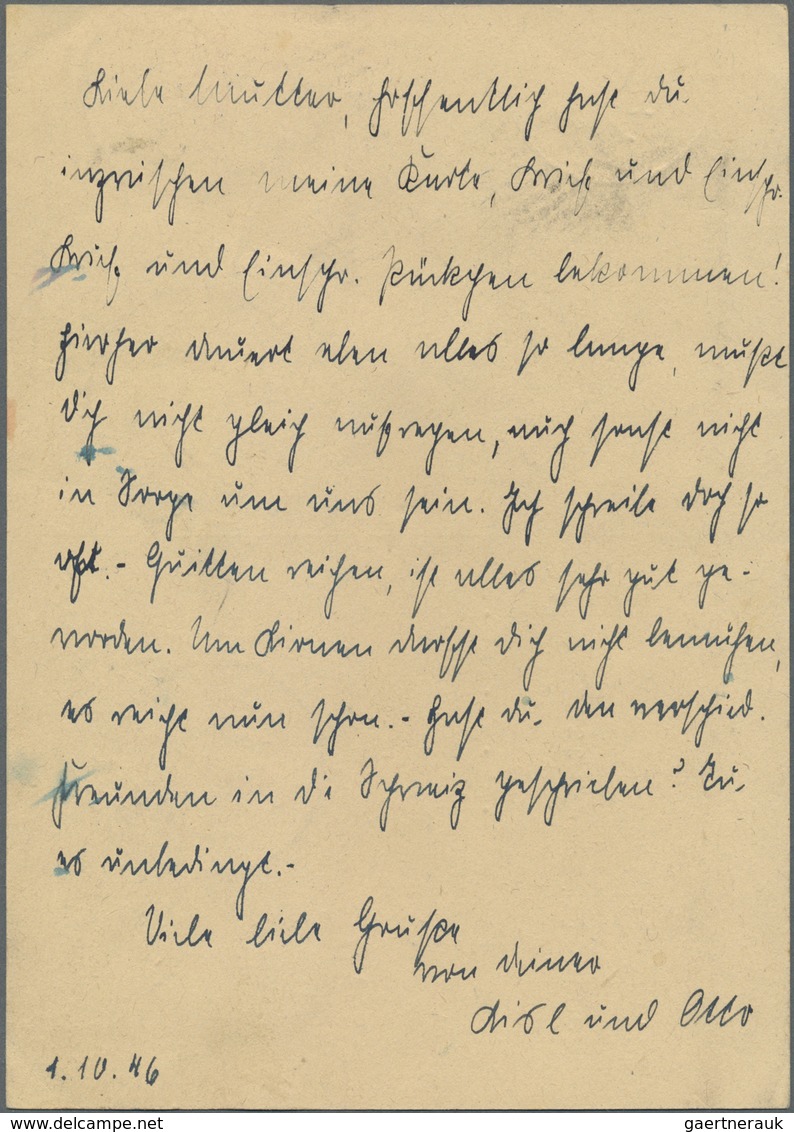 Liebe Mutter, hoffentlich hast du
inzwischen meine Karte, Brief und Einschr.
Brief und Einschr. Päckchen bekommen!
Hierher dauert eben alles so lange, mußt
dich nicht gleich aufregen, auch sonst nicht
in Sorge um uns sein. Ich schreibe doch so
oft. - Quitten reichen, ist alles sehr gut ge-
worden. Um Birnen darfst dich nicht bemühen,
es reicht nun schon. - Hast du den verschied.
Freunden in di Schweiz geschrieben? Tu
es unbedingt. -
Viele liebe Grüße
von deiner
Lisl und Otto
1.10.46
delcampe.net
gaertnerauk